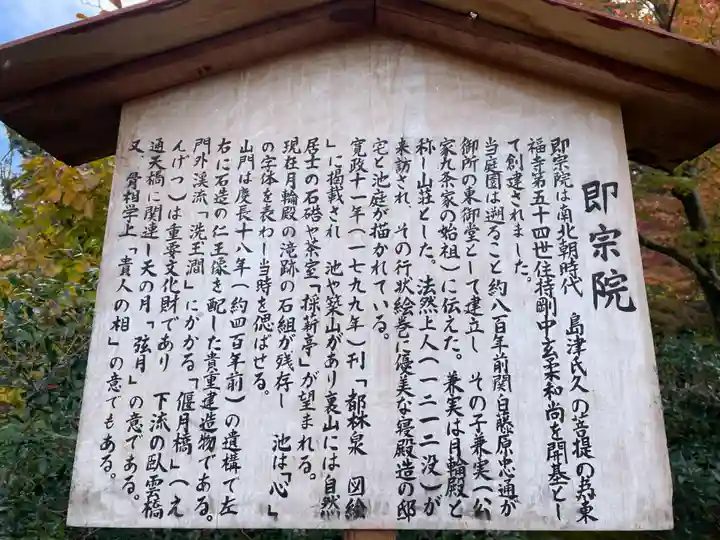 即宗院
即宗院は南北朝時代　島津氏久の菩提の為東
福寺第五十四世住持剛中玄柔和尚を開基とし
て創建されました。
当庭園は遡ること約八百年前関白藤原忠通が
御所の東御堂として建立し　その子兼実（公
家九条家の始祖）に伝えた。兼実は月輪殿と
称し山荘とした。法然上人（一二一二没）が
来訪され、その行状絵巻に優美な寝殿造の邸
宅と池庭が描かれている。
寛政十一年（一七九九年）刊「都林泉　図絵
」に掲載され　池や築山があり裏山には自然
居士の石碆や茶室「採薪亭」が望まれる。
現在月輪殿の滝跡の石組が残存し　池は「心」
の字体を表わし当時を偲ばせる。
山門は慶長十八年（約四百年前）の遺構で左
右に石造の仁王像を配した貴重建造物である。
門外渓流「洗玉澗」にかかる「偃月橋」（え
んげつ）は重要文化財であり　下流の臥雲橋
通天橋に関連し天の月「弦月」の意である。
又、骨相学上「貴人の相」の意でもある。